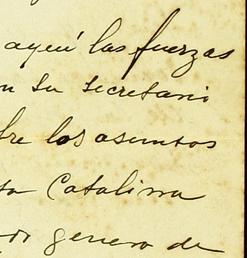 ayeú las fuerzas
n su secretario
bre los asuntos
ta Catalina
odo genero de